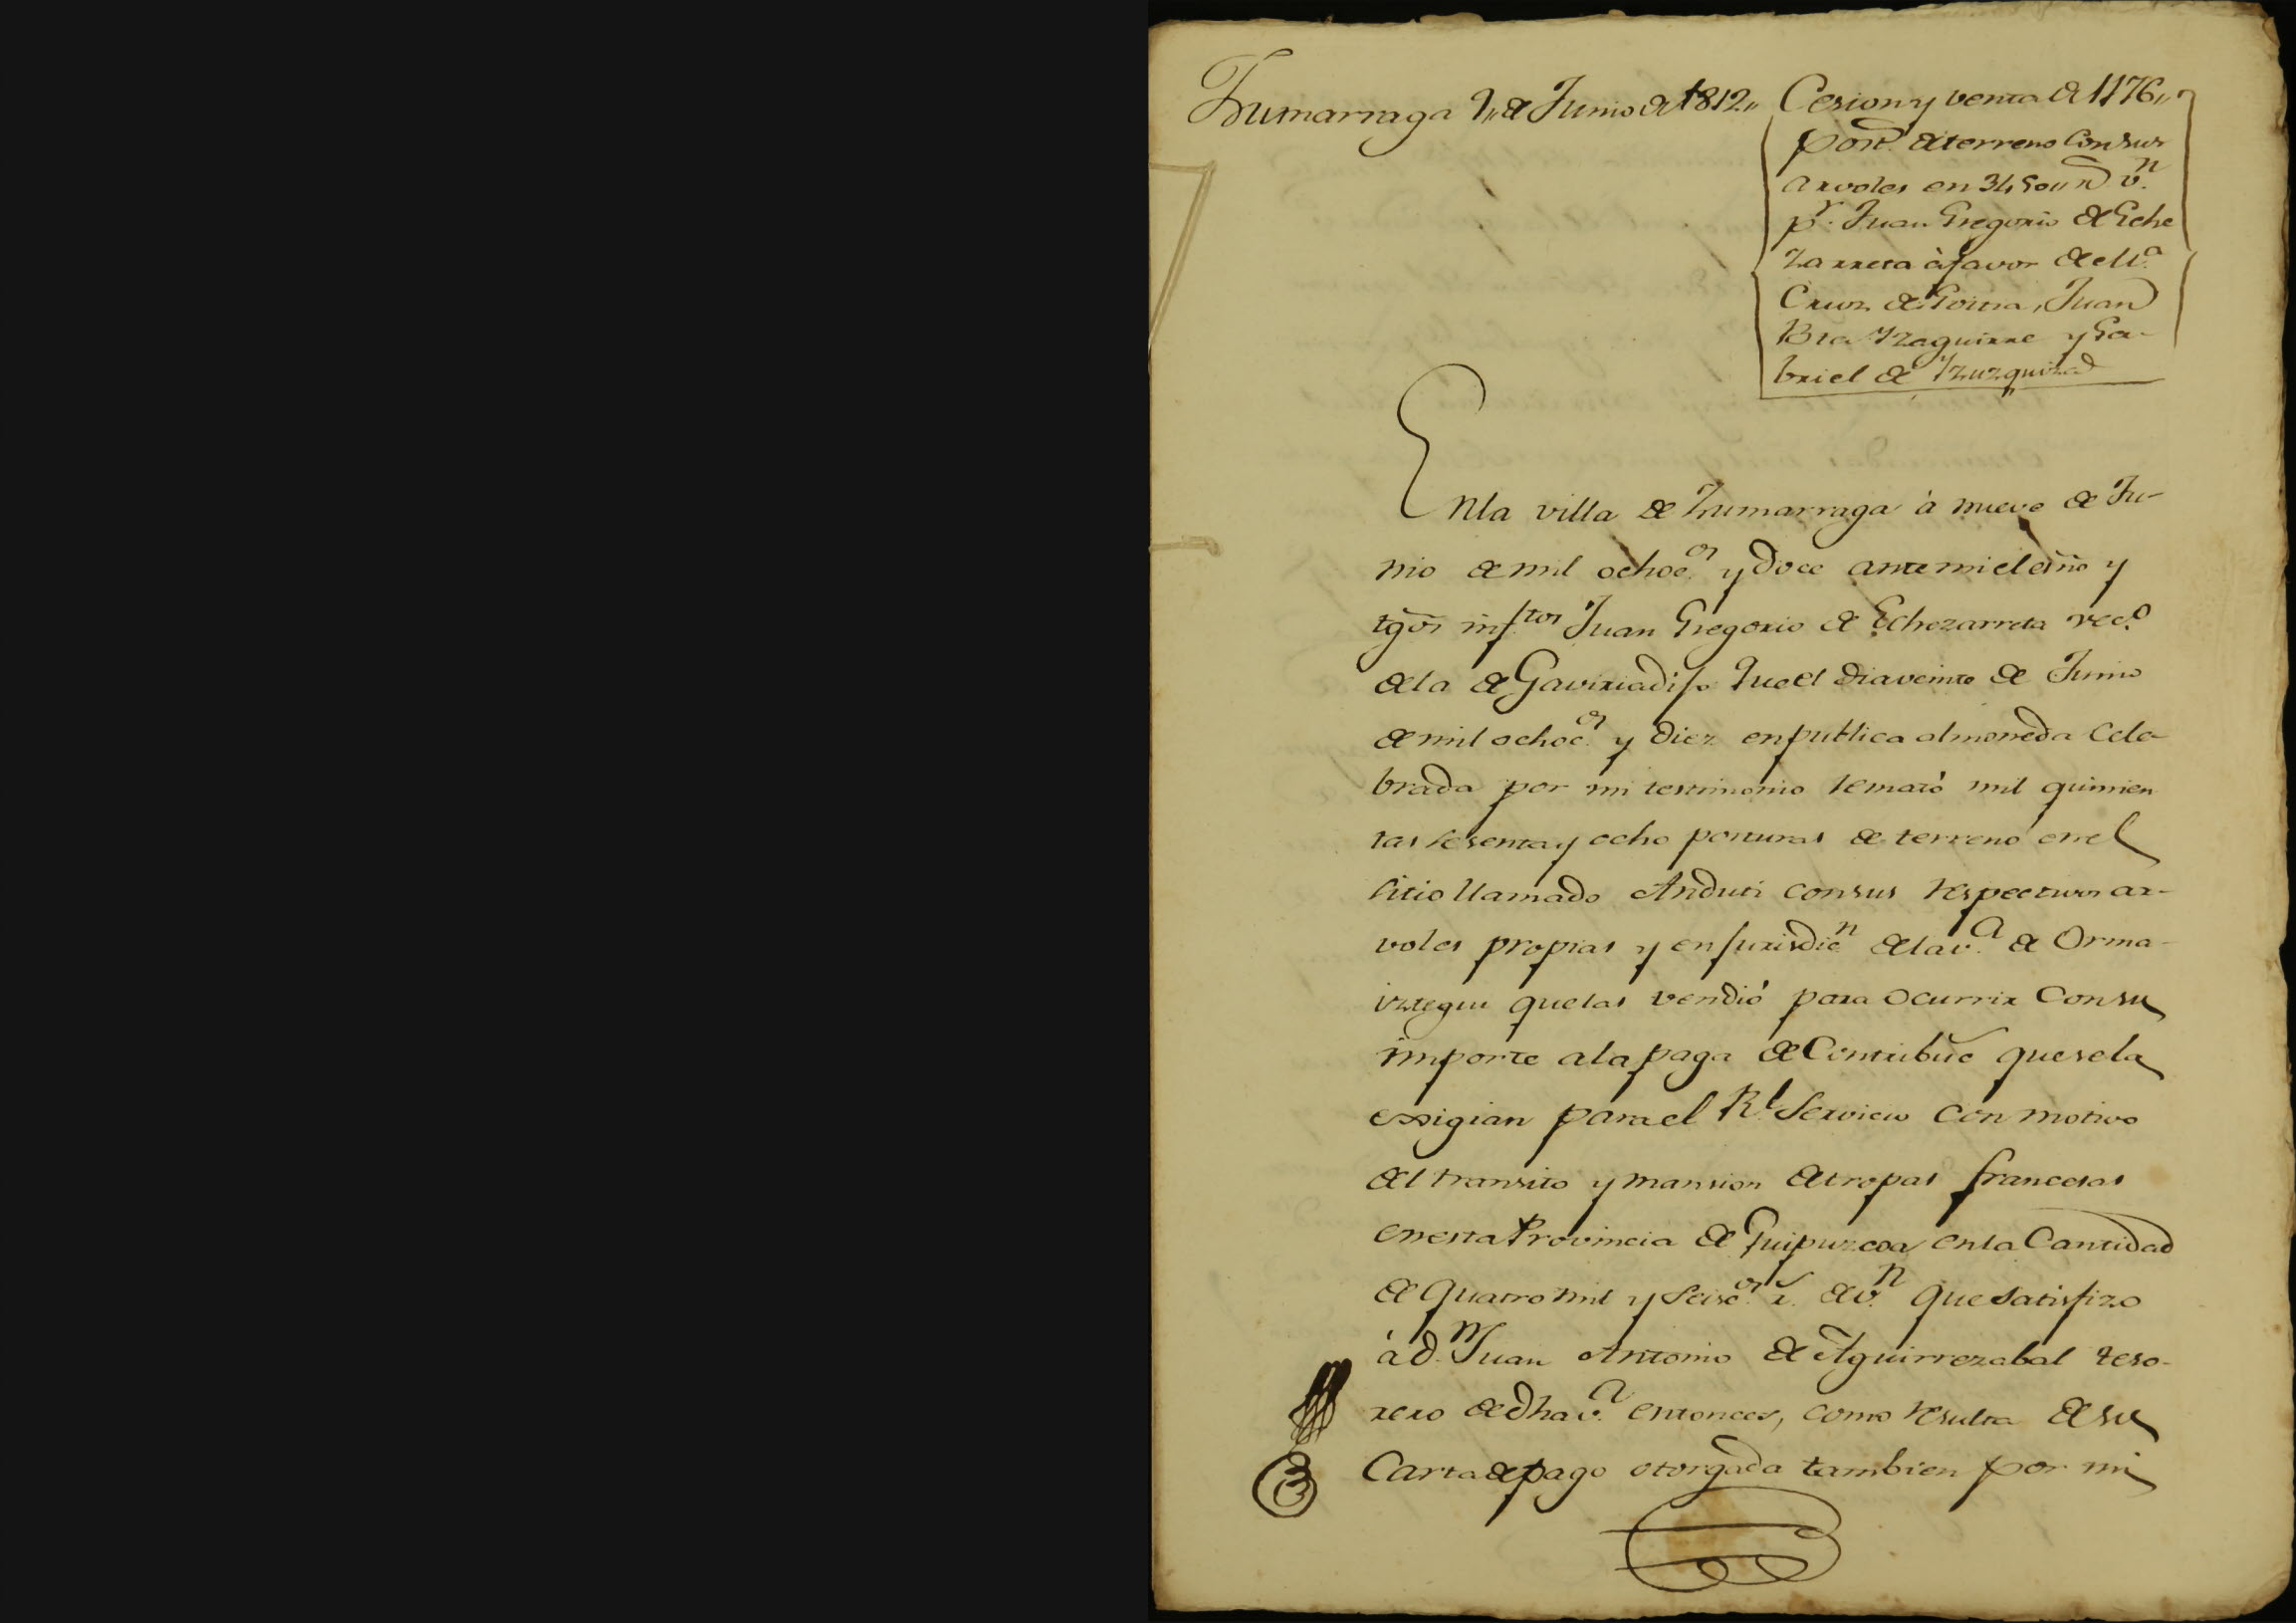 Zumarraga 9,, de Junio de 1812,,
Cesion y venta de 1176,,
post.s de terreno con sus
arvoles en 3450,, r.s v.n
p.r Juan Gregorio de Eche
zarreta à favor de M.a
Cruz de Goitia, Juan
Bta Yzaguirre y Ga-
briel de Yzuzquiza
En la villa de Zumarraga à nueve de Ju-
nio de mil ochoc.os y doce ante mi el esño y
tg̃os inf.tos Juan Gregorio de Echezarreta vec.o
de la de Gaviria dijo Que el dia veinte de Junio
de mil ochoc.os y diez en publica almoneda cele-
brada por mi testimonio remató mil quinien
tas sesenta y ocho posturas de terreno en el
sitio llamado Anduti con sus respectivos ar-
voles propias y en jurisdic.n de la v.a de Orma-
iztegui que las vendió para ocurrir con su
importe a la paga de Contribuc̃ que se la
exigian para el R.l Servicio con motivo
del transito y mansion de tropas francesas
en esta Provincia de Guipuzcoa en la Cantidad
de quatro mil y seisc.os r.s de v.n que satisfizo
à d.n Juan Antonio de Aguirrezabal teso-
rero de dha v.a entonces, como resulta de su
Carta de pago otorgada tambien por mi